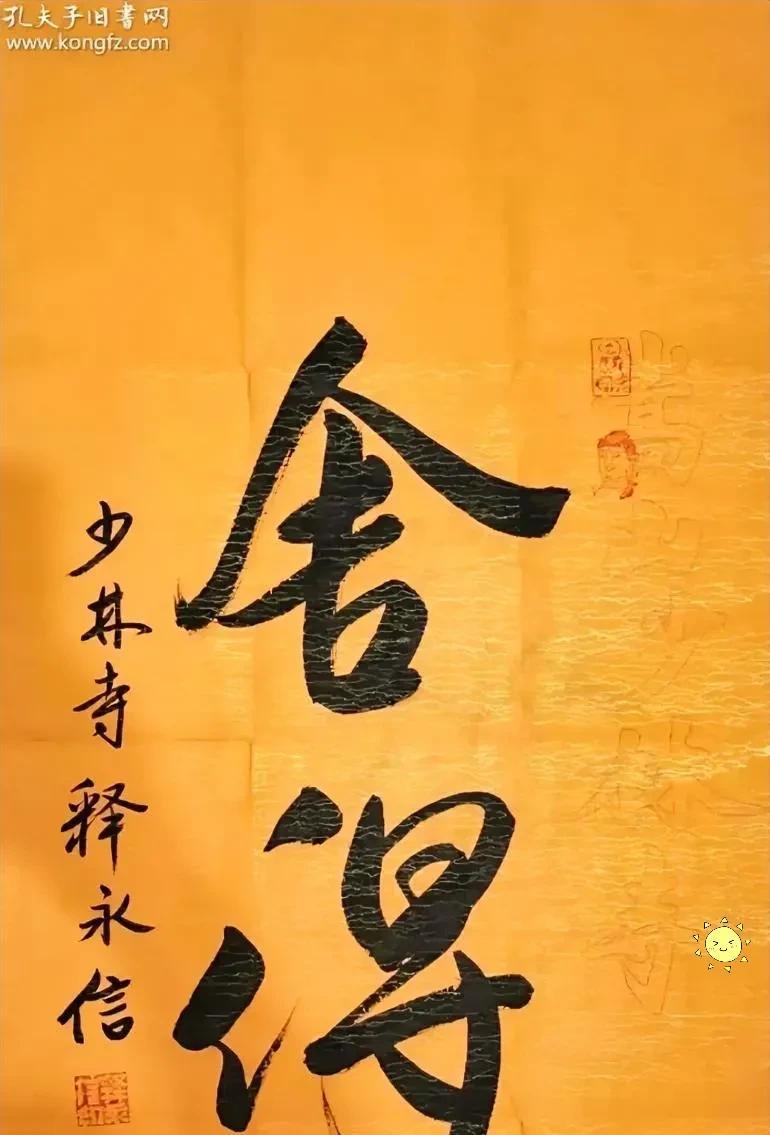 孔夫子旧书网
www.kongfz.com
嵩山少林寺
舍得
少林寺释永信